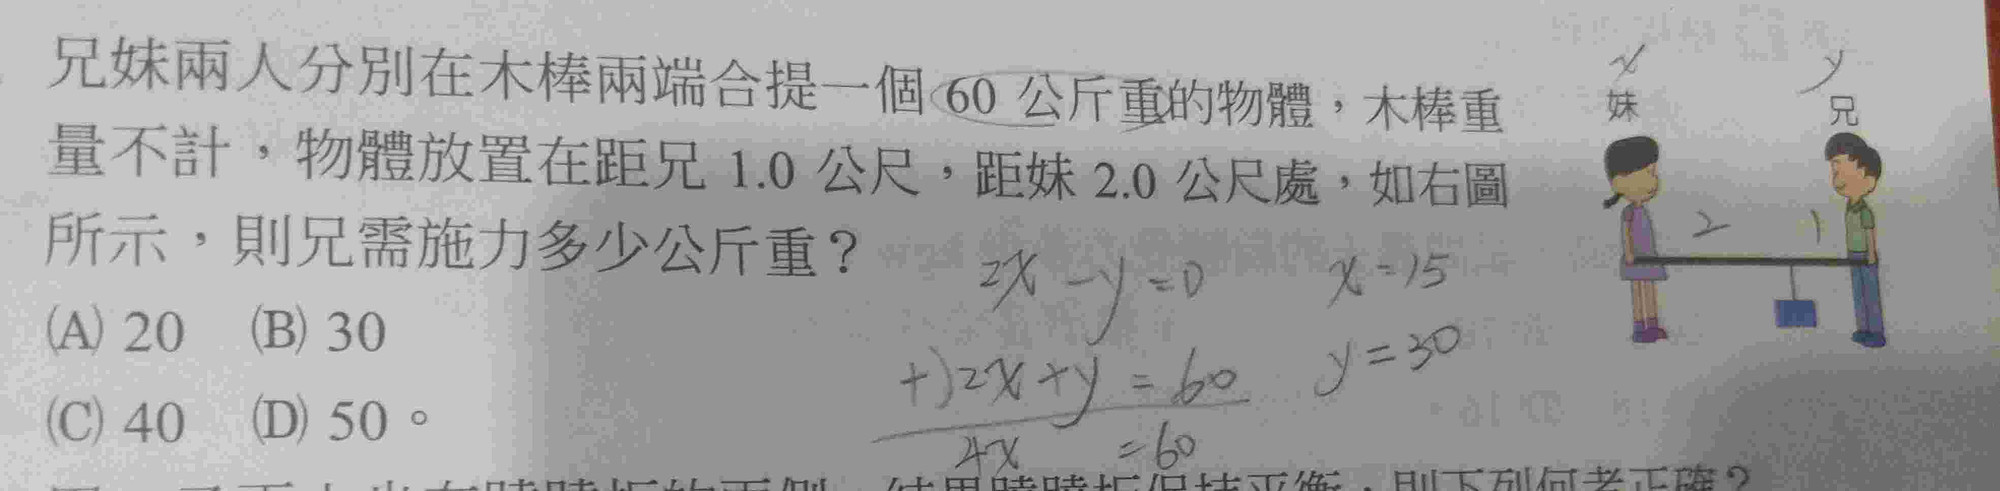 兄妹兩人分別在木棒兩端合提一個 60 公斤重的物體，木棒重
量不計，物體放置在距兄 1.0 公尺，距妹 2.0 公尺處，如右圖
所示，則兄需施力多少公斤重？
(A) 20 (B) 30
(C) 40 (D) 50。
x y
妹 兄
2 1
2x - y = 0
+) 2x + y = 60
4x = 60
x = 15
y = 30
則下列何者正確？